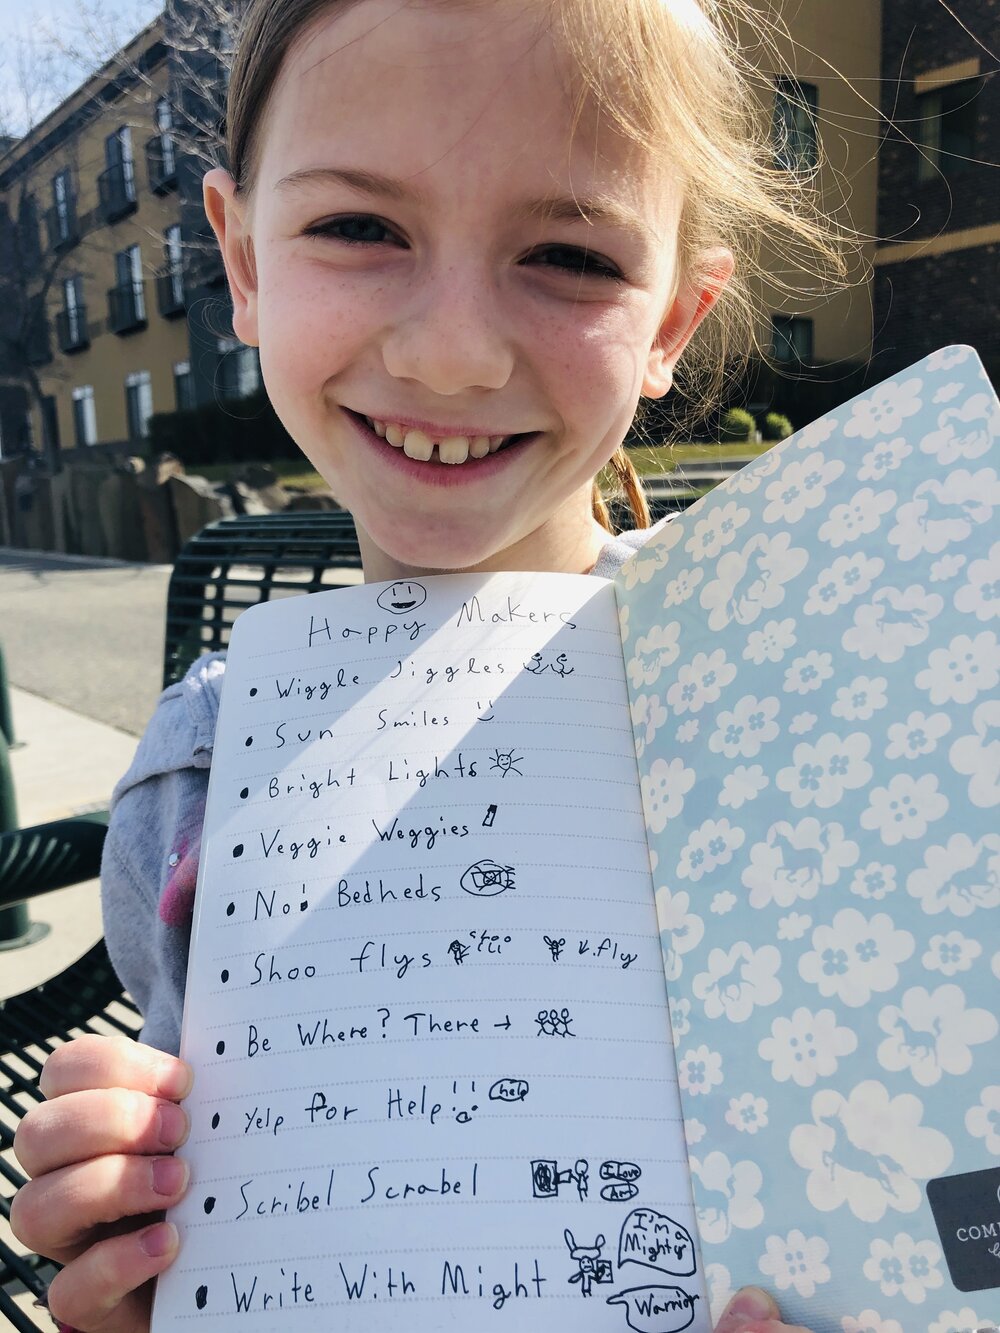 Happy Makers
• Wiggle Jiggles
• Sun Smiles
• Bright Lights
• Veggie Weggies
• No! Bedheds
• Shoo flys shoo fly
• Be Where? There →
• Yelp for Help!! help
• Scribel Scrabel I Love Art
• Write With Might I'm a Mighty Warrior